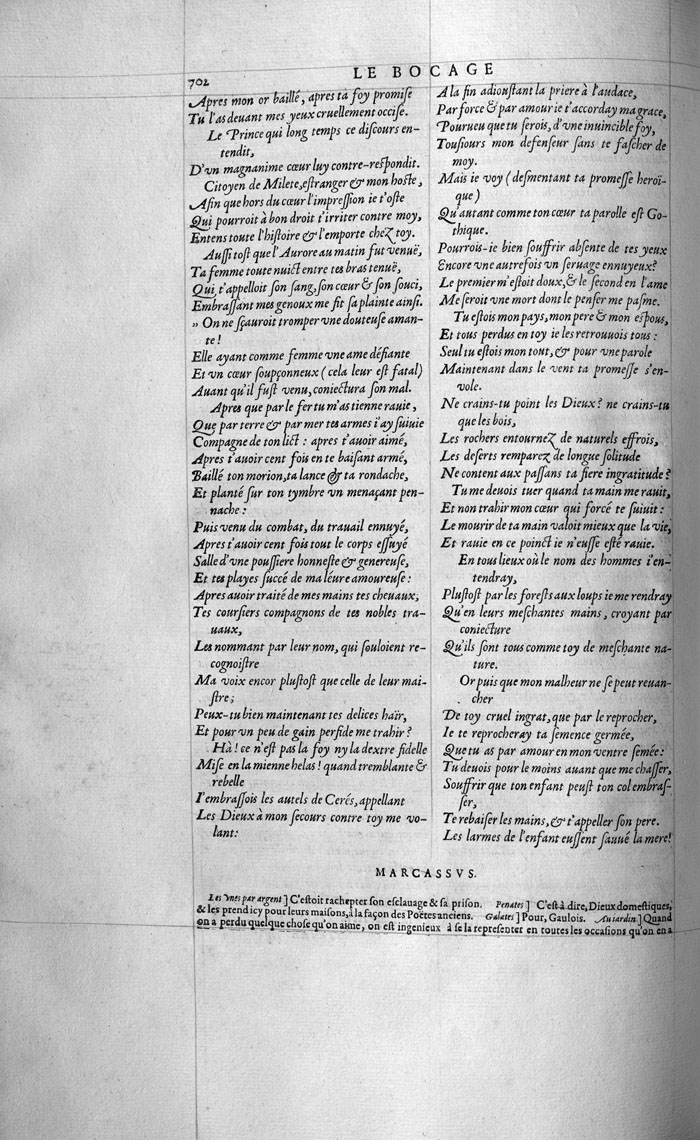 LE BOCAGE
702
Apres mon or baillé, apres ta foy promise
Tu l'as deuant mes yeux cruellement occise.
Le Prince qui long temps ce discours en-
tendit,
D'vn magnanime cœur luy contre-respondit.
Citoyen de Milete, estranger & mon hoste,
Afin que hors du cœur l'impression ie t'oste
Qui pourroit à bon droit t'irriter contre moy,
Entens toute l'histoire & l'emporte chez toy.
Aussi tost que l'Aurore au matin fut venuë,
Ta femme toute nuict entre tes bras tenuë,
Qui t'appelloit son sang, son cœur & son souci,
Embrassant mes genoux me fit sa plainte ainsi.
» On ne sçauroit tromper vne douteuse aman-
te!
Elle ayant comme femme vne ame défiante
Et vn cœur soupçonneux (cela leur est fatal)
Auant qu'il fust venu, coniectura son mal.
Apres que par le fer tu m'as tienne rauie,
Que par terre & par mer tes armes i'ay suiuie
Compagne de ton lict : apres t'auoir aimé,
Apres t'auoir cent fois en te baisant armé,
Baillé ton morion, ta lance & ta rondache,
Et planté sur ton tymbre vn menaçant pen-
nache :
Puis venu du combat, du trauail ennuyé,
Apres t'auoir cent fois tout le corps essuyé
Salle d'vne poussiere honneste & genereuse,
Et tes playes succé de ma léure amoureuse :
Apres auoir traité de mes mains tes cheuaux,
Tes coursiers compagnons de tes nobles tra-
uaux,
Les nommant par leur nom, qui souloient re-
cognoistre
Ma voix encor plustost que celle de leur mai-
stre;
Peux-tu bien maintenant tes delices haïr,
Et pour vn peu de gain perfide me trahir ?
Hà ! ce n'est pas la foy ny la dextre fidelle
Mise en la mienne helas ! quand tremblante &
rebelle
I'embrassois les autels de Cerés, appellant
Les Dieux à mon secours contre toy me vo-
lant:
A la fin adioustant la priere à l'audace,
Par force & par amour ie t'accorday ma grace,
Pourueu que tu serois, d'vne inuincible foy,
Tousiours mon defenseur sans te fascher de
moy.
Mais ie voy (desmentant ta promesse heroï-
que)
Qu'autant comme ton cœur ta parolle est Go-
thique.
Pourrois-ie bien souffrir absente de tes yeux
Encore vne autrefois vn seruage ennuyeux?
Le premier m'estoit doux, & le second en l'ame
Me seroit vne mort dont le penser me pasme.
Tu estois mon pays, mon pere & mon espous,
Et tous perdus en toy ie les retrouuois tous :
Seul tu estois mon tout, & pour vne parole
Maintenant dans le vent ta promesse s'en-
vole.
Ne crains-tu point les Dieux? ne crains-tu
que les bois,
Les rochers entournez de naturels effrois,
Les deserts remparez de longue solitude
Ne content aux passans ta fiere ingratitude ?
Tu me deuois tuer quand ta main me rauit,
Et non trahir mon cœur qui forcé te suiuit :
Le mourir de ta main valoit mieux que la vie,
Et rauie en ce poinct ie n'eusse esté rauie.
En tous lieux où le nom des hommes i'en-
tendray,
Plustost par les forests aux loups ie me rendray
Qu'en leurs meschantes mains, croyant par
coniecture
Qu'ils sont tous comme toy de meschante na-
ture.
Or puis que mon malheur ne se peut reuan-
cher
De toy cruel ingrat, que par le reprocher,
Ie te reprocheray ta semence germée,
Que tu as par amour en mon ventre semée:
Tu deuois pour le moins auant que me chasser,
Souffrir que ton enfant peust ton col embras-
ser,
Te rebaiser les mains, & t'appeller son pere.
Les larmes de l'enfant eussent sauué la mere!
MARCASSVS.
Les vnes par argent] C'estoit rachepter son esclauage & sa prison. Penates] C'est à dire, Dieux domestiques,
& les prend icy pour leurs maisons, à la façon des Poëtes anciens. Galates] Pour, Gaulois. Au iardin] Quand
on a perdu quelque chose qu'on aime, on est ingenieux à se la representer en toutes les occasions qu'on en a